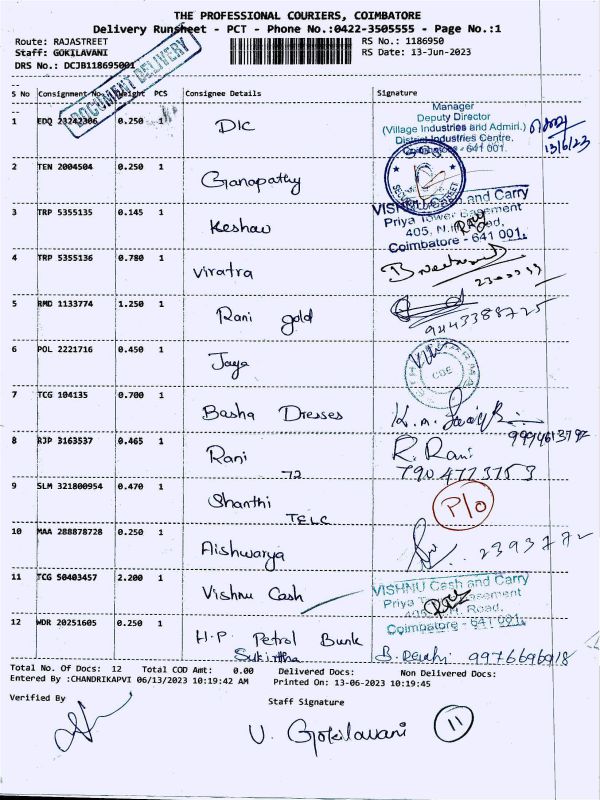 THE PROFESSIONAL COURIERS, COIMBATORE
Delivery Runsheet - PCT - Phone No.:0422-3505555 - Page No.:1
Route: RAJASTREET RS No.: 1186950
Staff: GOKILAVANI RS Date: 13-Jun-2023
DRS No.: DCJB118695001
DOCUMENT DELIVERY
S No Consignment No. Weight PCS Consignee Details Signature
Manager
Deputy Director
(Village Industries and Admin.)
District Industries Centre,
Coimbatore - 641 001.
13/6/23
1 EDQ 23242306 0.250 1 DIC
2 TEN 2004504 0.250 1 Ganapathy
VISHNU Cash and Carry
Priya Tower Basement
405, N.H. Road,
Coimbatore - 641 001.
3 TRP 5355135 0.145 1 Keshav
4 TRP 5355136 0.780 1 Viratra
5 RMD 1133774 1.250 1 Rani gold
9443388725
6 POL 2221716 0.450 1 Jaya
CBE
7 TCG 104135 0.700 1 Basha Dresses
9994613792
8 RJP 3163537 0.465 1 Rani R. Rani
72 7904773753
9 SLM 321800954 0.470 1 Shanthi P/o
TELC
10 MAA 288878728 0.250 1 Aishwarya 2393772
11 TCG 50403457 2.200 1 Vishnu Cash
VISHNU Cash and Carry
Priya Tower Basement
405, N.H. Road,
Coimbatore - 641 001.
12 WDR 20251605 0.250 1 H.P. Petrol Bunk
9976696918
Total No. Of Docs: 12 Total COD Amt: 0.00 Delivered Docs: Non Delivered Docs:
Entered By :CHANDRIKAPVI 06/13/2023 10:19:42 AM Printed On: 13-06-2023 10:19:45
Verified By Staff Signature
V. Gokilavani 11